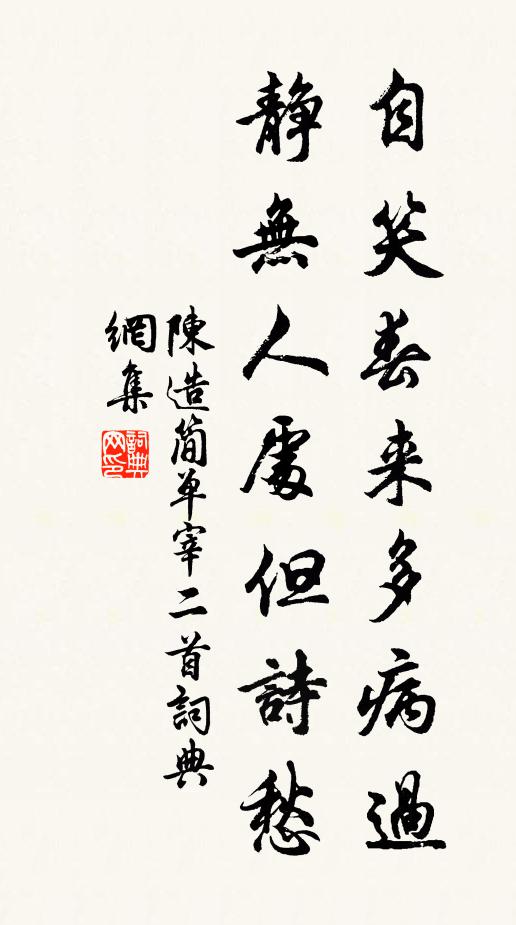 自笑春来多病過
静無人處但詩愁
陳造簡單宰二首詞典
網集
詞典网印